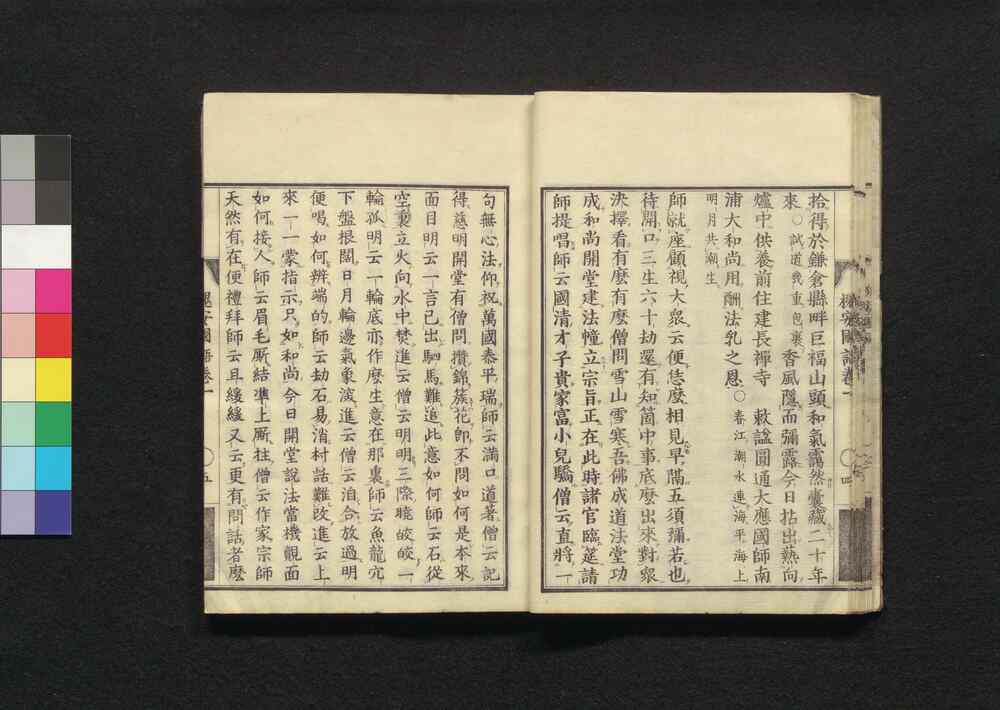 拾得於鎌倉縣畔巨福山頭和氣靄然囊藏二十年
來○試道幾重包裹香風隱而彌露今日拈出爇向
爐中供養前住建長禪寺　敕諡圓通大應國師南
浦大和尚用酬法乳之恩○春江潮水連海平海上
明月共潮生
師就座顧視大衆云便恁麼相見早隔五須彌若也
待開口三生六十劫還有知箇中事底麼出來對衆
決擇看有麼有麼僧問雪山雪寒吾佛成道法堂功
成和尚開堂建法幢立宗旨正在此時諸官臨筵請
師提唱師云國清才子貴家富小兒驕僧云直將一
槐安國語卷一
四
句無心法仰祝萬國泰平瑞師云滿口道著僧云記
得慈明開堂有僧問攢錦簇花卽不問如何是本來
面目明云一言已出駟馬難追此意如何師云石從
空裏立火向水中焚進云僧云明明三際曉皎皎一
輪孤明云一輪底亦作麼生意在那裏師云魚龍穴
下盤根闊日月輪邊氣象深進云僧云洎合放過明
便喝如何辨端的師云劫石易消村話難改進云上
來一一蒙指示只如和尚今日開堂說法當機覿面
如何接人師云眉毛厮結準上厮拄僧云作家宗師
天然有在便禮拜師云且緩緩又云更有問話者麼
槐安國語卷一
五